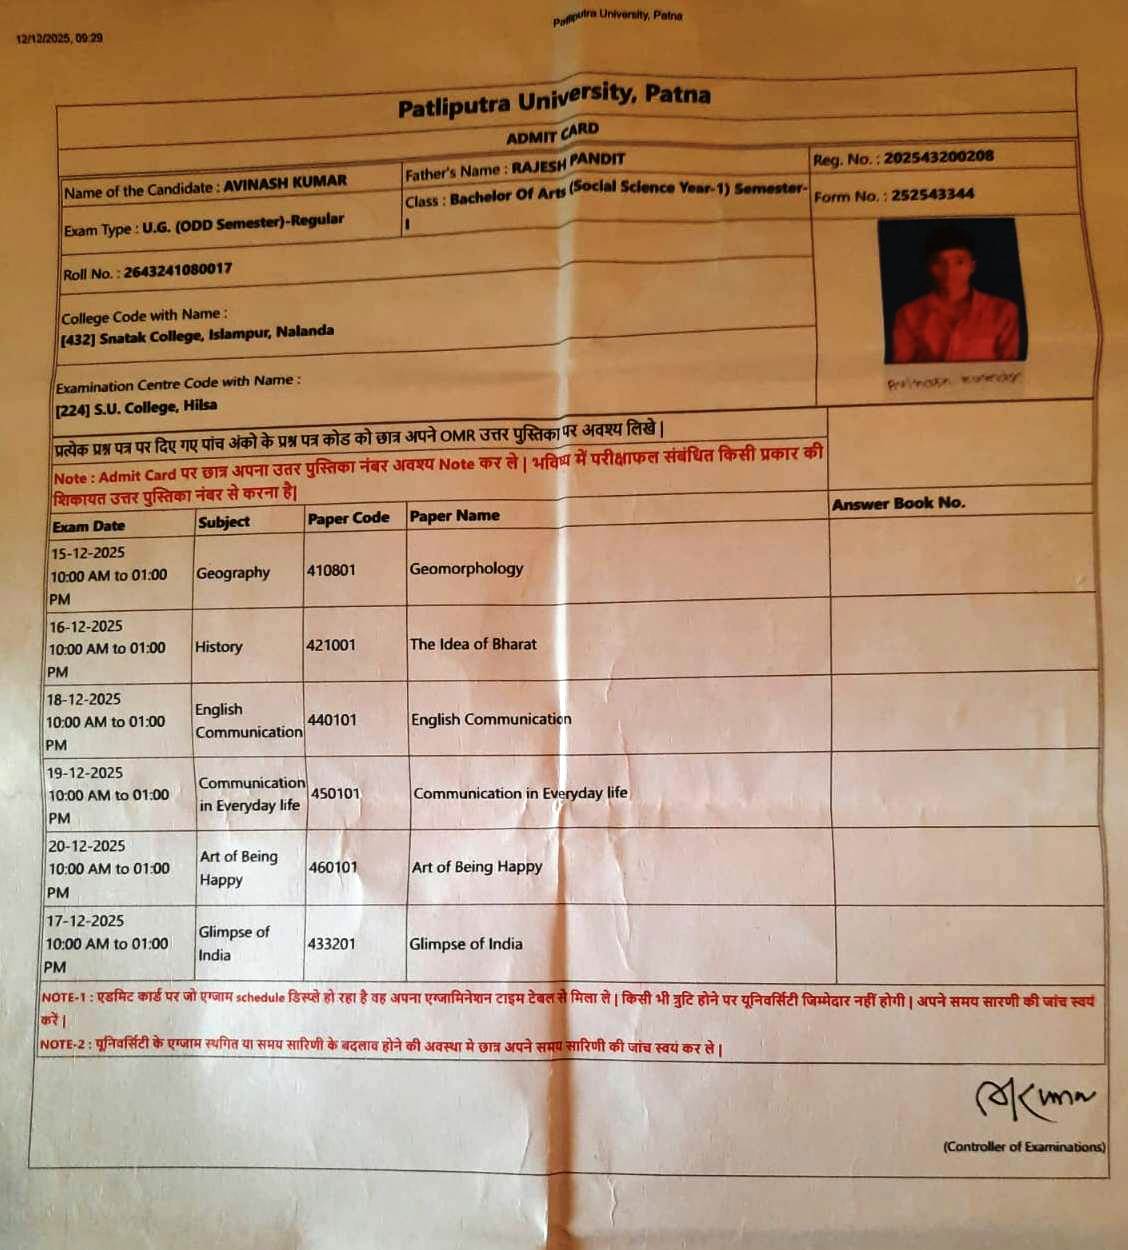 Patliputra University, Patna
12/12/2025, 09:29
Patliputra University, Patna
ADMIT CARD
Name of the Candidate : AVINASH KUMAR
Father's Name : RAJESH PANDIT
Reg. No. : 202543200208
Exam Type : U.G. (ODD Semester)-Regular
Class : Bachelor Of Arts (Social Science Year-1) Semester-
I
Form No. : 252543344
Roll No. : 2643241080017
College Code with Name :
[432] Snatak College, Islampur, Nalanda
Examination Centre Code with Name :
[224] S.U. College, Hilsa
प्रत्येक प्रश्न पत्र पर दिए गए पांच अंको के प्रश्न पत्र कोड को छात्र अपने OMR उत्तर पुस्तिका पर अवश्य लिखे |
Note : Admit Card पर छात्र अपना उतर पुस्तिका नंबर अवश्य Note कर ले | भविष्य में परीक्षाफल संबंधित किसी प्रकार की
शिकायत उत्तर पुस्तिका नंबर से करना है|
Exam Date Subject Paper Code Paper Name Answer Book No.
15-12-2025
10:00 AM to 01:00
PM
Geography 410801 Geomorphology
16-12-2025
10:00 AM to 01:00
PM
History 421001 The Idea of Bharat
18-12-2025
10:00 AM to 01:00
PM
English
Communication
440101 English Communication
19-12-2025
10:00 AM to 01:00
PM
Communication
in Everyday life
450101 Communication in Everyday life
20-12-2025
10:00 AM to 01:00
PM
Art of Being
Happy
460101 Art of Being Happy
17-12-2025
10:00 AM to 01:00
PM
Glimpse of
India
433201 Glimpse of India
NOTE-1 : एडमिट कार्ड पर जो एग्जाम schedule डिस्प्ले हो रहा है वह अपना एग्जामिनेशन टाइम टेबल से मिला ले | किसी भी त्रुटि होने पर यूनिवर्सिटी जिम्मेदार नहीं होगी | अपने समय सारणी की जांच स्वयं
करें |
NOTE-2 : यूनिवर्सिटी के एग्जाम स्थगित या समय सारिणी के बदलाव होने की अवस्था मे छात्र अपने समय सारिणी की जांच स्वयं कर ले |
(Controller of Examinations)